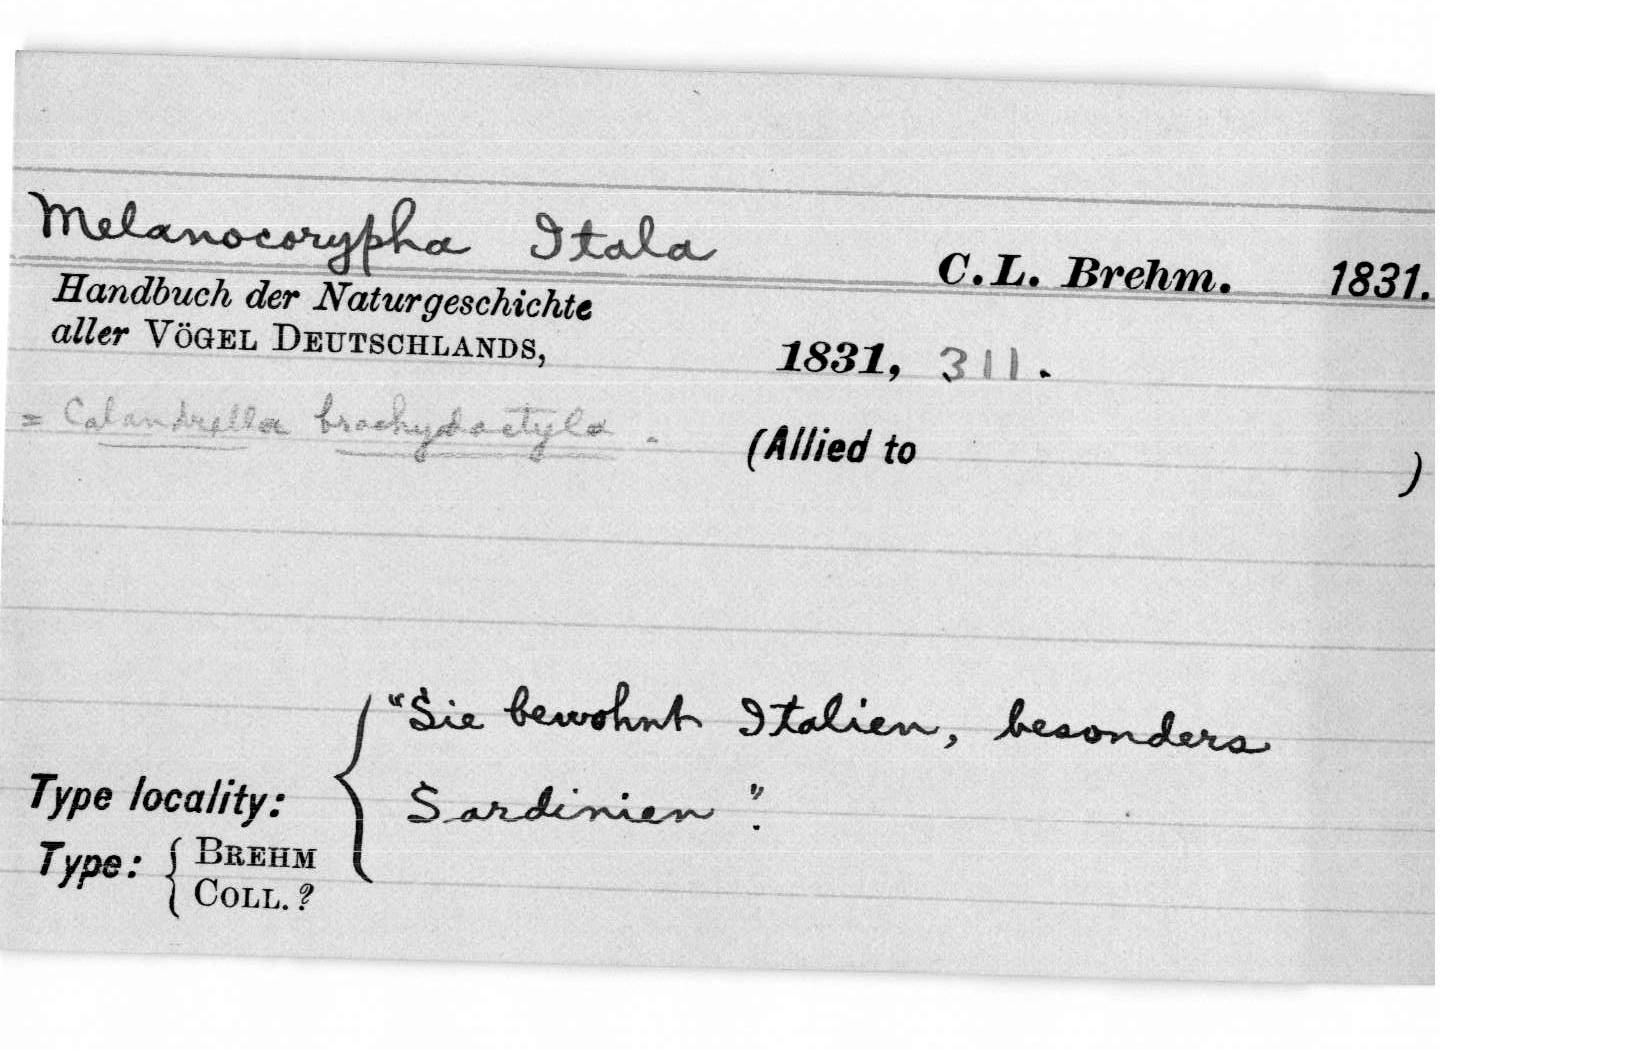 Melanocorypha Itala
C.L. Brehm. 1831.
Handbuch der Naturgeschichte
aller VÖGEL DEUTSCHLANDS,
1831, 311.
= Calandrella brachydactyla.
(Allied to )
"Sie bewohnt Italien, besonders
Sardinien".
Type locality:
Type: { BREHM
COLL.?